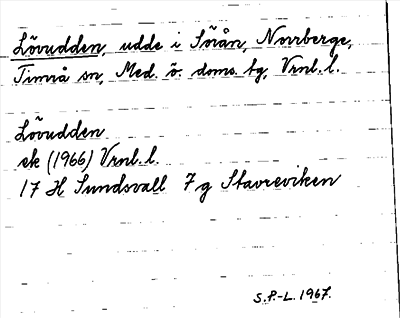 Lövudden, udde i Sörån, Norrberge,
Timrå sn, Med. ö. doms. tg, Vrnl. l.
Lövudden
ek (1966) Vrnl. l.
17 H Sundsvall 7 g Stavreviken
S.P.-L. 1967.